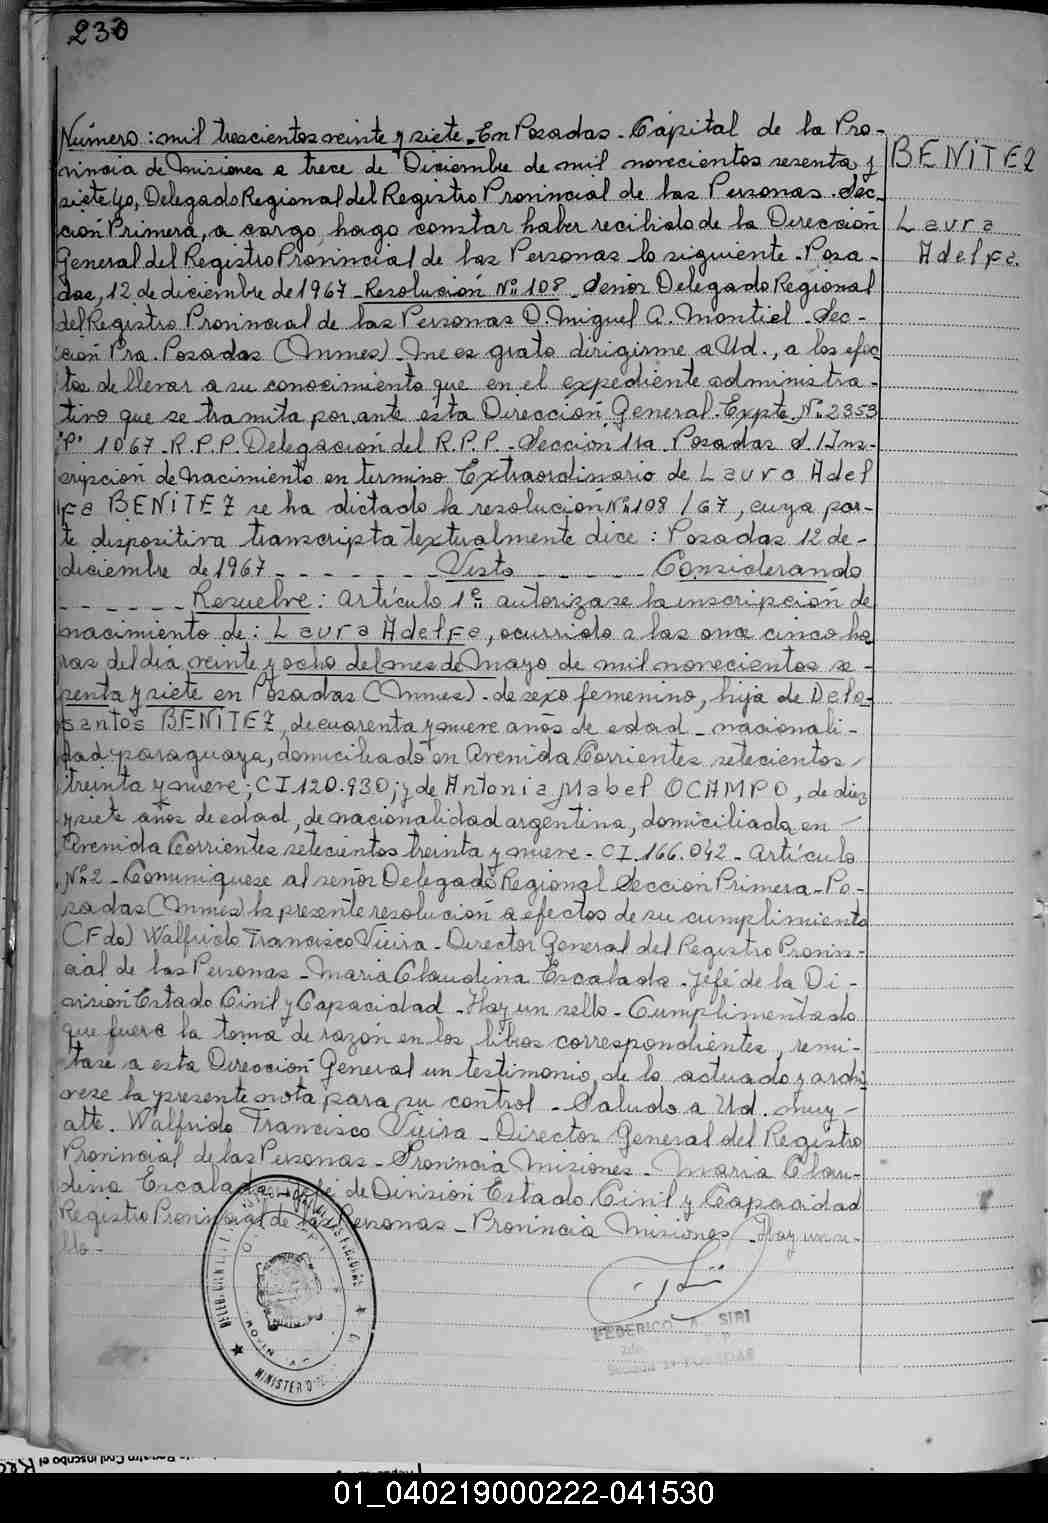 230
Número: mil trescientos veinte y siete. En Posadas - Capital de la Pro-
vincia de Misiones a trece de Diciembre de mil novecientos sesenta y
siete yo, Delegado Regional del Registro Provincial de las Personas. Sec-
ción Primera, a cargo, hago constar haber recibido de la Dirección
General del Registro Provincial de las Personas lo siguiente - Posa-
das, 12 de diciembre de 1967 - Resolución Nº 108 - Señor Delegado Regional
del Registro Provincial de las Personas D. Miguel A. Montiel - Sec-
ción Pra. Posadas (Mnes) - Me es grato dirigirme a Ud., a los efec
tos de llevar a su conocimiento que en el expediente administra-
tivo que se tramita por ante esta Dirección General - Expte Nº 2353
"P" 1067 - R.P.P. Delegación del R.P.P. - Sección 1ra Posadas S/Ins-
cripción de nacimiento en termino Extraordinario de Laura Adel
fa BENITEZ se ha dictado la resolución Nº 108/67, cuya par-
te dispositiva transcripta textualmente dice: Posadas 12 de-
diciembre de 1967 - - - - - - - Visto - - - - - Considerando
- - - - - - Resuelve: Artículo 1º autorizase la inscripción de
nacimiento de: Laura Adelfa, ocurrido a las once cinco ho
ras del día veinte y ocho del mes de Mayo de mil novecientos se-
senta y siete en Posadas (Mnes) - de sexo femenino, hija de Delo-
santos BENITEZ, de cuarenta y nueve años de edad - nacionali-
dad paraguaya, domiciliado en Avenida Corrientes setecientos
treinta y nueve; CI 120.930; y de Antonia Mabel OCAMPO, de diez
y siete años de edad, de nacionalidad argentina, domiciliada en -
Avenida Corrientes setecientos treinta y nueve - CI. 166.042 - Artículo
Nº 2 - Comuniquese al señor Delegado Regional Sección Primera - Po-
sadas (Mnes) la presente resolución a efectos de su cumplimiento
(Fdo) Walfrido Francisco Vieira - Director General del Registro Provin-
cial de las Personas - Maria Claudina Escalada - Jefe de la Di-
visión Estado Civil y Capacidad - Hay un sello - Cumplimentado
que fuera la toma de razón en los libros correspondientes, remi-
tase a esta Dirección General un testimonio de lo actuado y archi
vese la presente nota para su control - Saludo a Ud. muy -
atte. Walfrido Francisco Vieira - Director General del Registro
Provincial de las Personas - Provincia Misiones - Maria Clau-
dina Escalada - Jefe de División Estado Civil y Capacidad
Registro Provincial de las Personas - Provincia Misiones - Hay un se-
llo -
BENITEZ
Laura
Adelfa.
MINISTERIO
FEDERICO A. SIRI
POSADAS
01_040219000222-041530